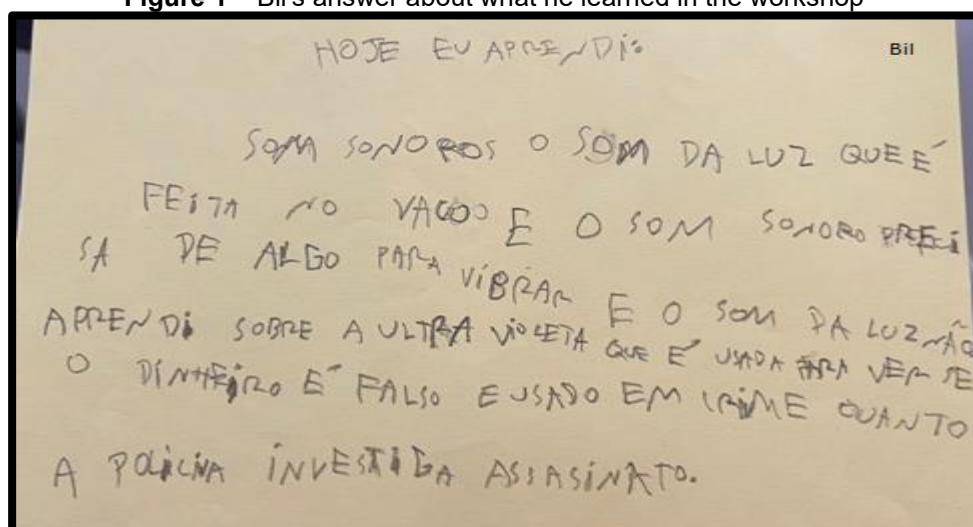 Figure 1 – Bil's answer about what he learned in the workshop
HOJE EU APRENDi:
Bil
SOM SONOROS O SOM DA LUZ QUE É
FEiTA NO VACOO E O SOM SONORO PRECi
SA DE ALGO PARA ViBRAR E O SOM DA LUZ NÃO
APRENDi SOBRE A ULTRA ViOLETA QUE É USADA PARA VER SE
O DiNHEiRO É FALSO E USADO EM CRiME QUANTO
A POLiCiNA iNVESTiGA ASSASiNATO.